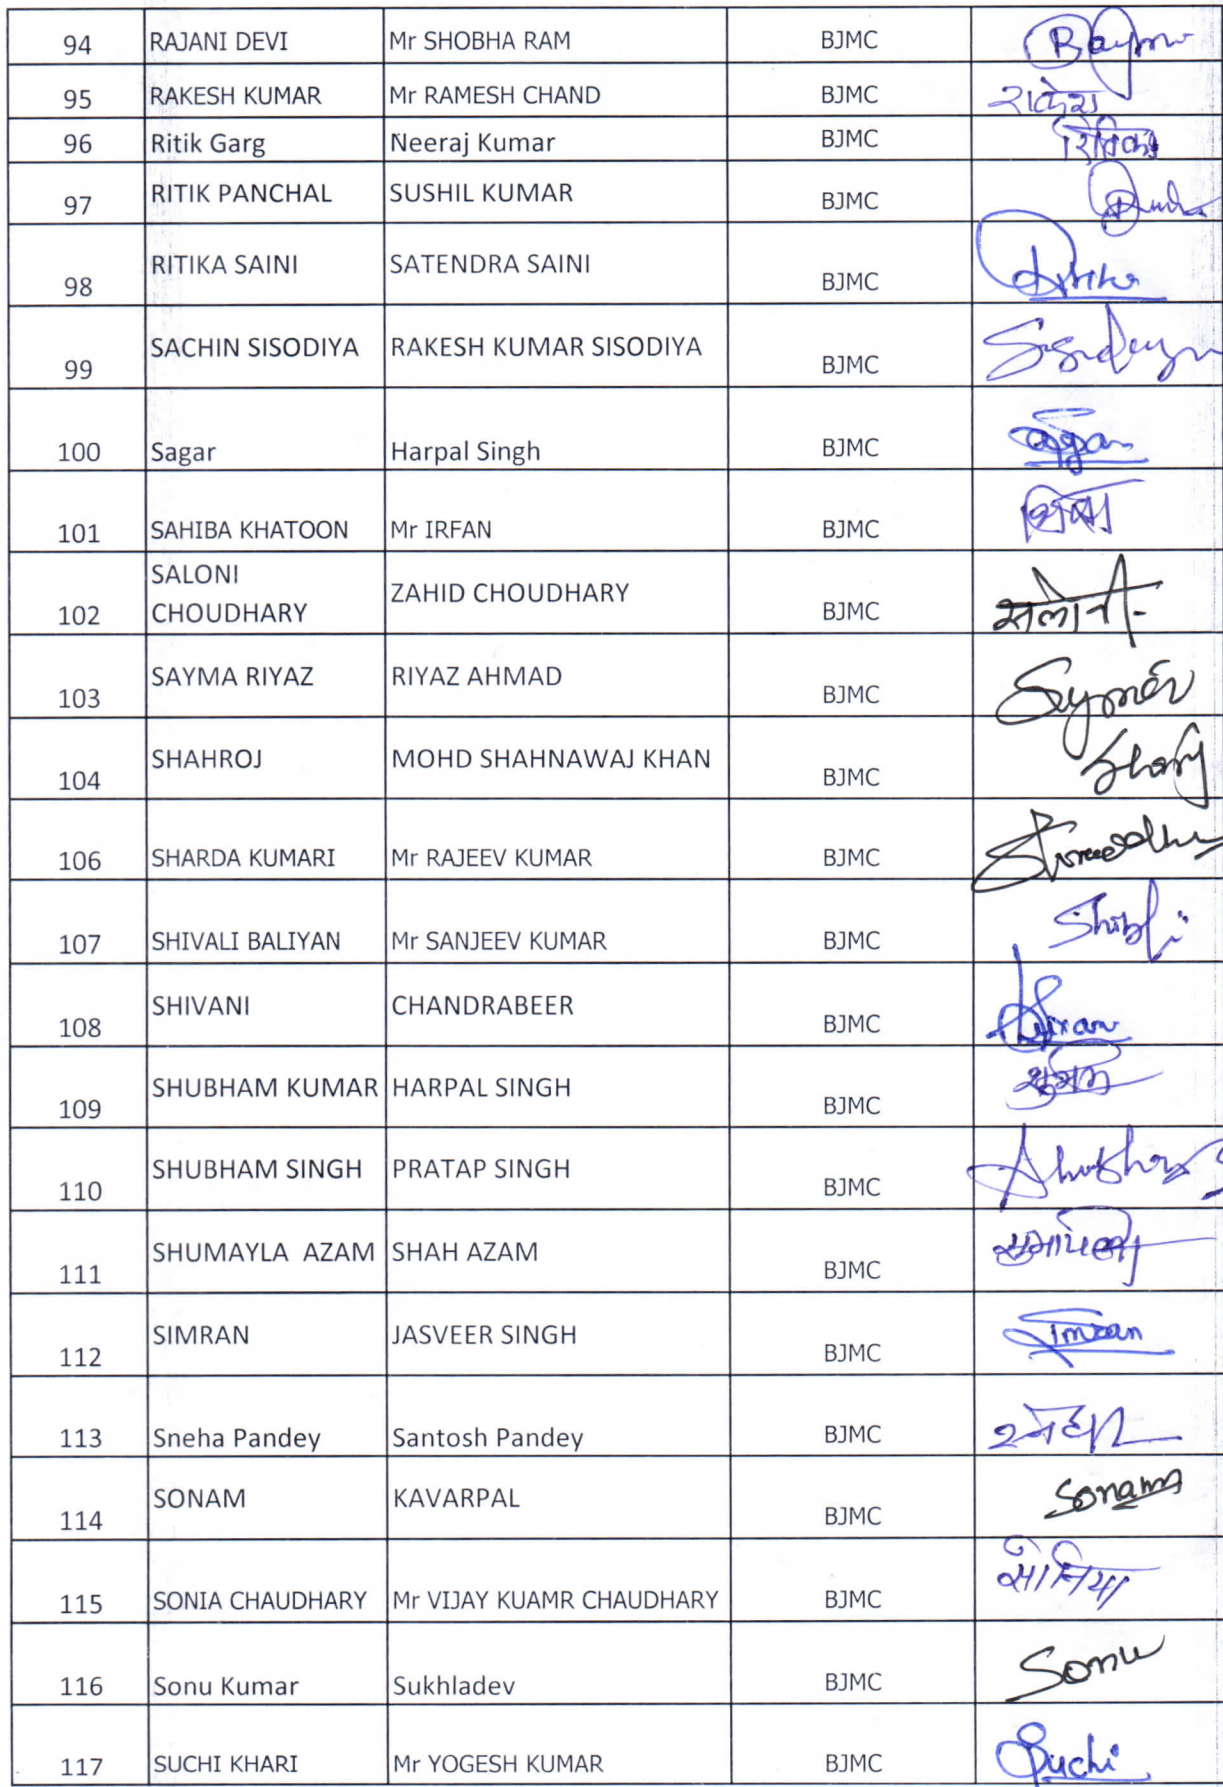 94 RAJANI DEVI Mr SHOBHA RAM BJMC
95 RAKESH KUMAR Mr RAMESH CHAND BJMC राकेश
96 Ritik Garg Neeraj Kumar BJMC
97 RITIK PANCHAL SUSHIL KUMAR BJMC
98 RITIKA SAINI SATENDRA SAINI BJMC
99 SACHIN SISODIYA RAKESH KUMAR SISODIYA BJMC
100 Sagar Harpal Singh BJMC
101 SAHIBA KHATOON Mr IRFAN BJMC
SALONI
102 CHOUDHARY ZAHID CHOUDHARY BJMC सलोनी
103 SAYMA RIYAZ RIYAZ AHMAD BJMC
104 SHAHROJ MOHD SHAHNAWAJ KHAN BJMC
106 SHARDA KUMARI Mr RAJEEV KUMAR BJMC
107 SHIVALI BALIYAN Mr SANJEEV KUMAR BJMC
108 SHIVANI CHANDRABEER BJMC
109 SHUBHAM KUMAR HARPAL SINGH BJMC
110 SHUBHAM SINGH PRATAP SINGH BJMC
111 SHUMAYLA AZAM SHAH AZAM BJMC
112 SIMRAN JASVEER SINGH BJMC Simran
113 Sneha Pandey Santosh Pandey BJMC
114 SONAM KAVARPAL BJMC Sonam
115 SONIA CHAUDHARY Mr VIJAY KUAMR CHAUDHARY BJMC सोनिया
116 Sonu Kumar Sukhladev BJMC Sonu
117 SUCHI KHARI Mr YOGESH KUMAR BJMC Suchi